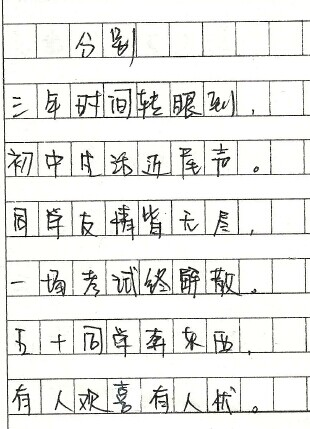 分别
三年时间转眼到，
初中生活近尾声。
同学友情皆无尽，
一场考试终解散。
五十同学奔东西，
有人欢喜有人忧。